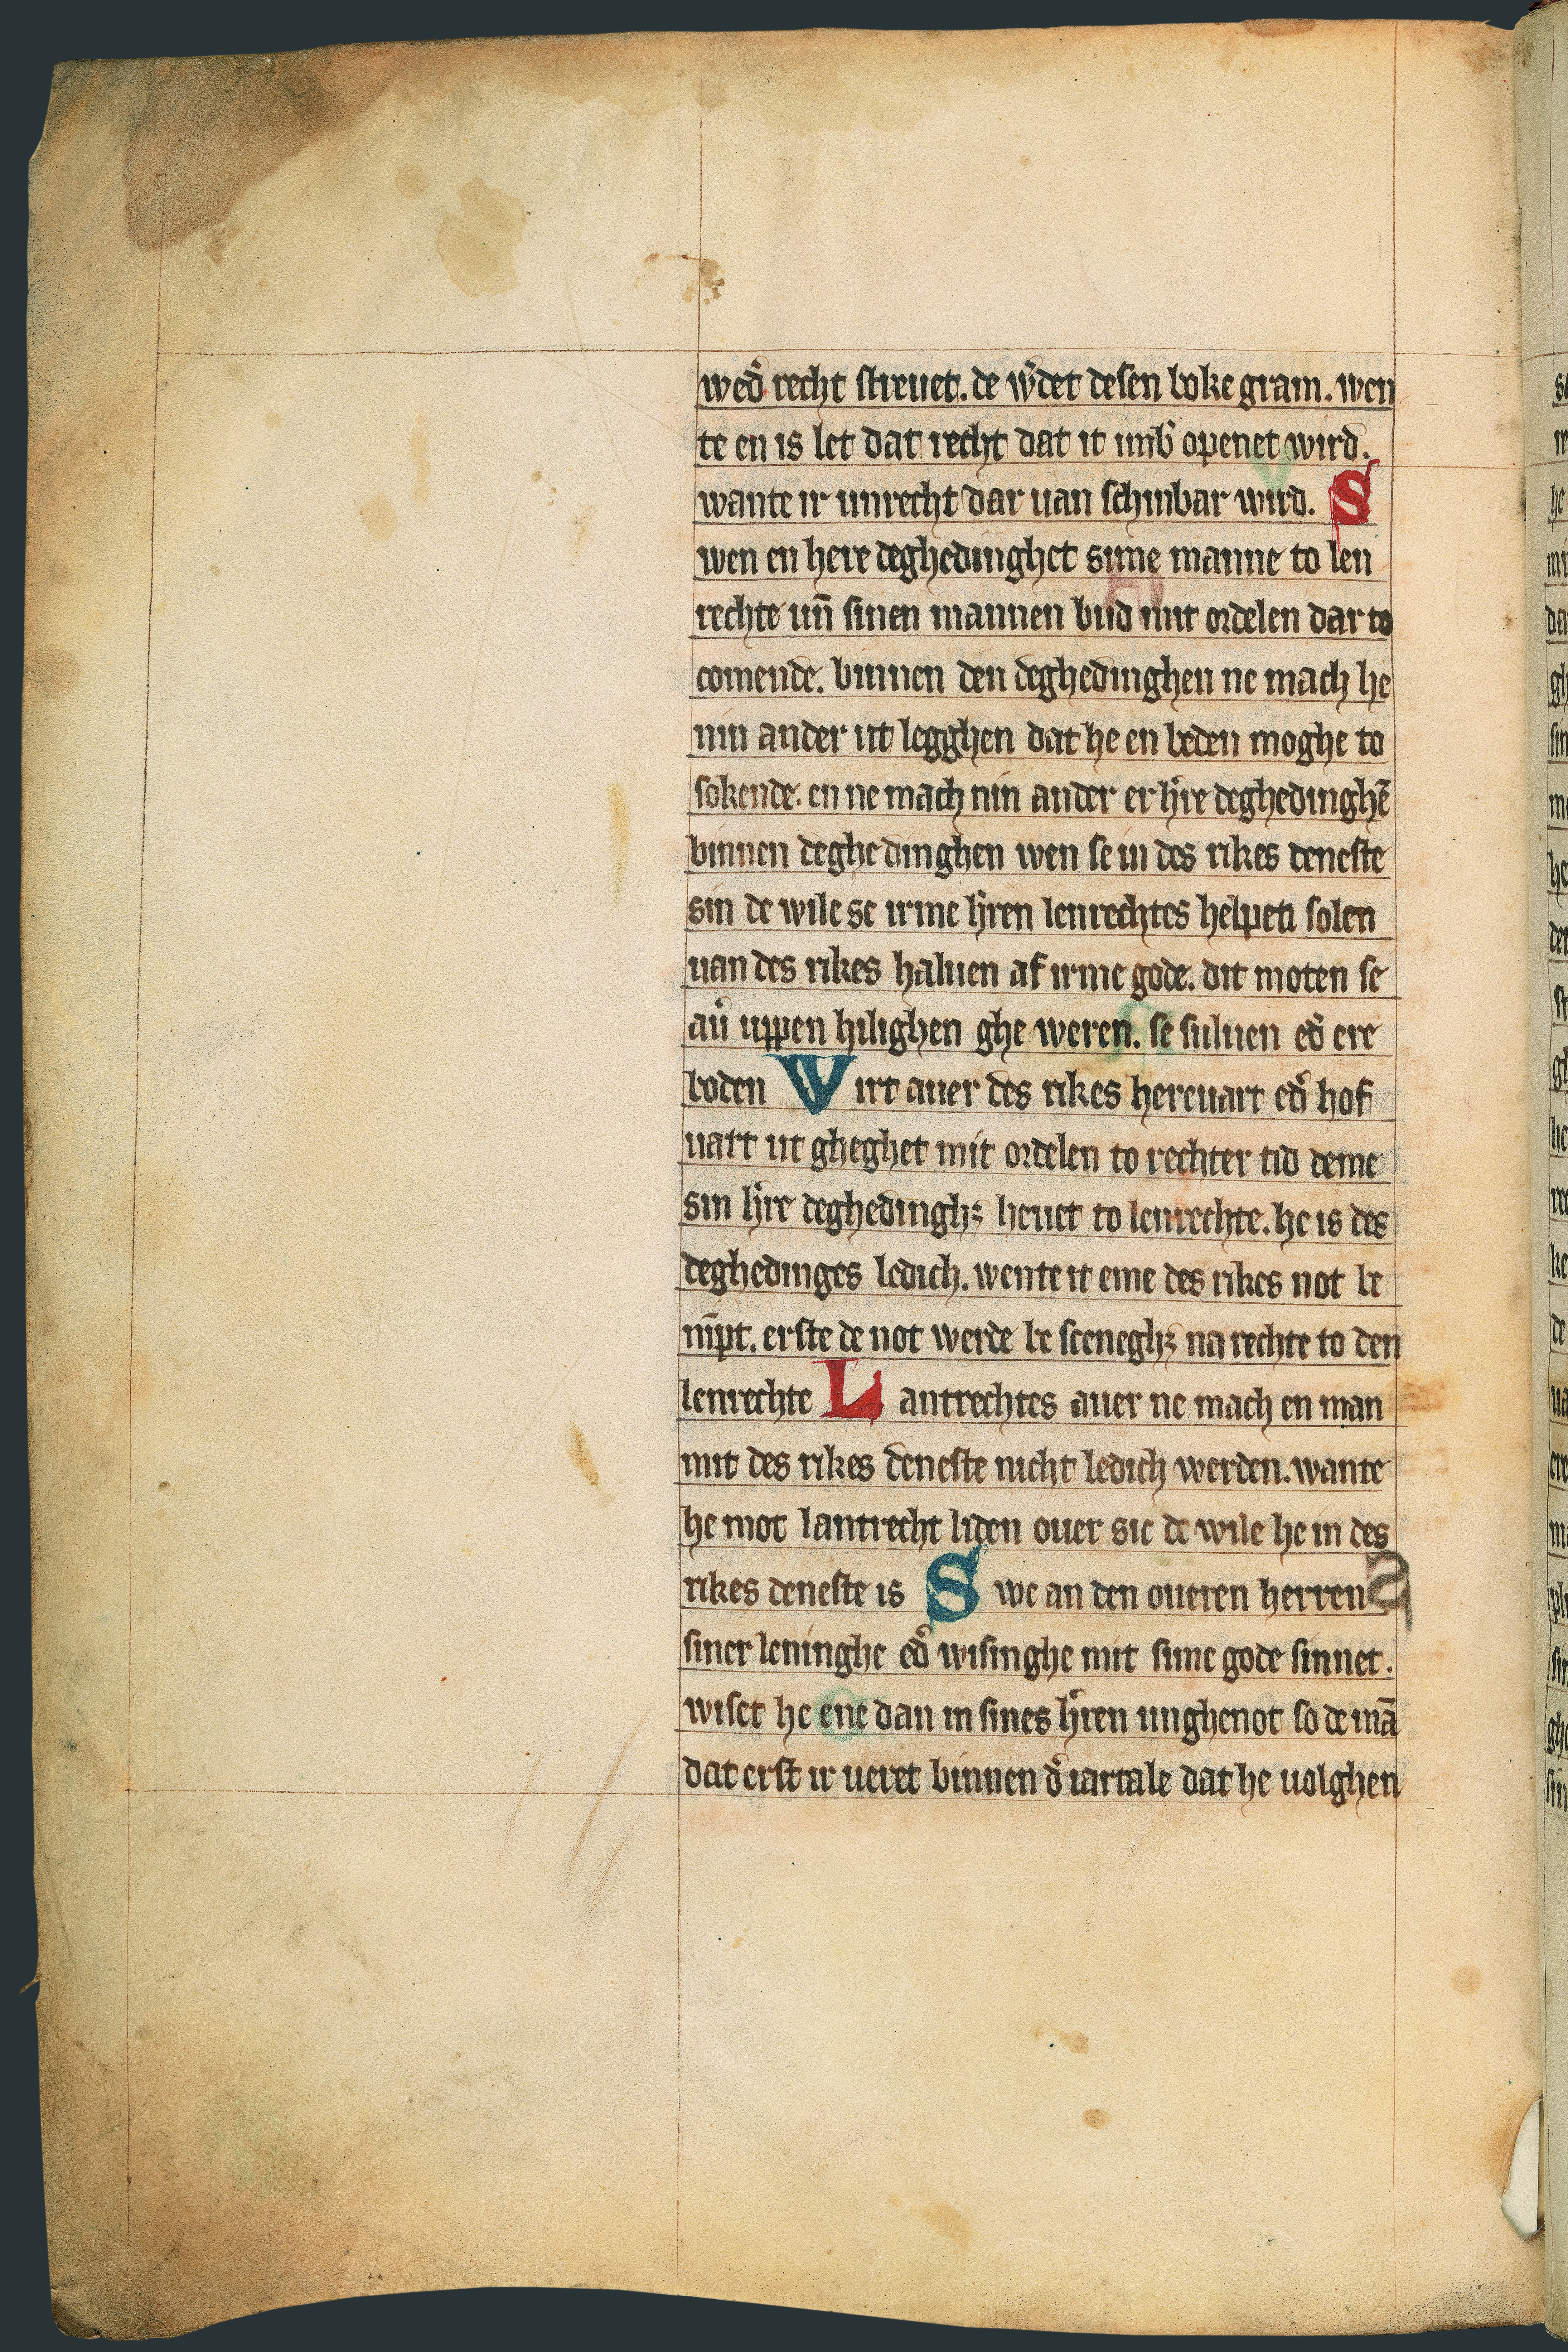 wed᷑ recht streuet. de w᷑det desen boke gram. wen
te en is let dat recht dat it imb᷑ openet wird.
wante ir unrecht dar uan schinbar wird. S
wen en here deghedinghet sime manne to len
rechte un̄ sinen mannen bud mit ordelen dar to
comende. binnen den deghedinghen ne mach he
nin ander ut legghen dat he en beden moghe to
sokende. en ne mach nin ander er h᷑re deghedinghē
binnen deghedinghen wen se in des rikes deneste
sin de wile se irme h᷑ren lenrechtes helpen solen
uan des rikes haluen af irme gode. dit moten se
au᷑ uppen hilighen ghe weren. se suluen ed᷑ ere
boden Wirt auer des rikes hereuart ed᷑ hof
uart ut gheghet mit ordelen to rechter tid deme
sin h᷑re deghedinghꝫ heuet to lenrechte. he is des
deghedinges ledich. wente it eme des rikes not be
nīpt. erste de not werde be sceneghꝫ na rechte to den
lenrechte Lantrechtes auer ne mach en man
mit des rikes deneste nicht ledich werden. wante
he mot lantrecht liden ouer sic de wile he in des
rikes deneste is Swe an den oueren herren
siner leninghe ed᷑ wisinghe mit sime gode sinnet.
wiset he ene dan in sines h᷑ren unghenot so de mā
dat erst ir ueret binnen d᷑ iartale dat he uolghen